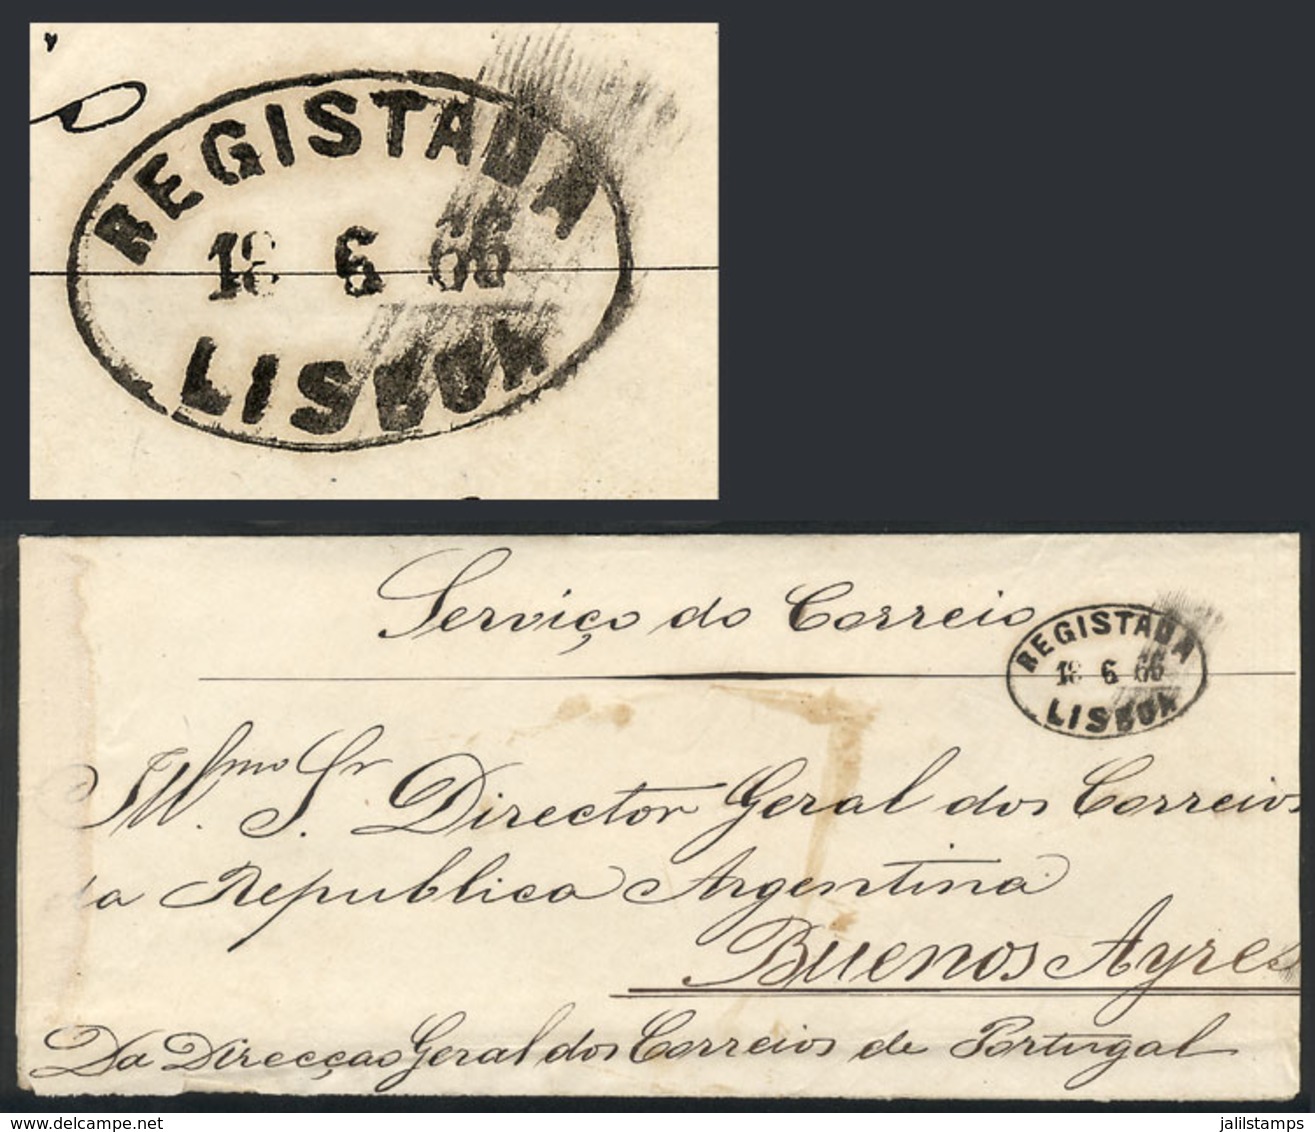 REGISTADA
18 6 66
LISBOA
Serviço do Correio
REGISTADA
18 6 66
LISBOA
Illmo. Sr. Director Geral dos Correios
da Republica Argentina
Buenos Ayres
Da Direcçao Geral dos Correios de Portugal
delcampe.net
jalilstamps